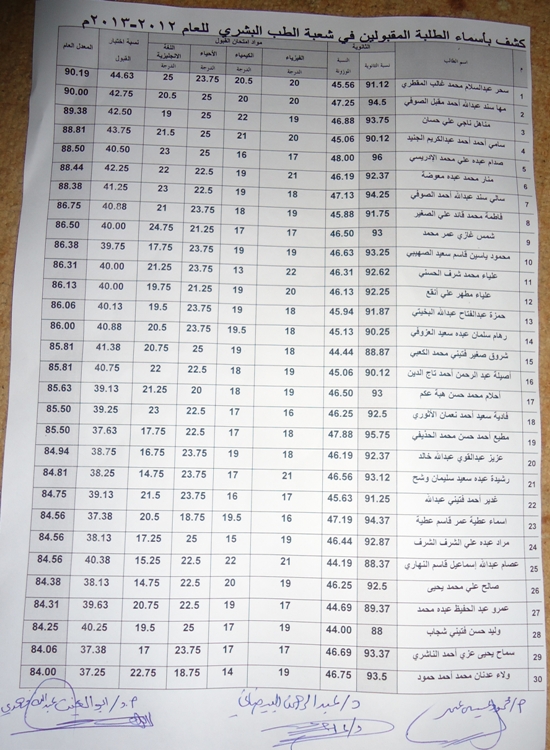 كشف بأسماء الطلبة المقبولين في شعبة الطب البشري للعام ٢٠١٢-٢٠١٣م
م اسم الطالب الثانوية مواد امتحان القبول نسبة اختبار القبول المعدل العام
نسبة الثانوية النسبة الموزونة الفيزياء الكيمياء الأحياء اللغة الانجليزية
الدرجة الدرجة الدرجة الدرجة
1 سحر عبدالسلام محمد غالب المقطري 91.12 45.56 20 20.5 23.75 25 44.63 90.19
2 مها سند عبدالله أحمد مقبل الصوفي 94.5 47.25 20 20 25 20.5 42.75 90.00
3 مناهل ناجي علي حسان 93.75 46.88 19 22 25 19 42.50 89.38
4 سامي أحمد أحمد عبدالكريم الجنيد 90.12 45.06 20 21 25 21.5 43.75 88.81
5 صدام عبده علي محمد الادريسي 96 48.00 17 16 25 23 40.50 88.50
6 منار محمد عبده معوضة 92.37 46.19 21 19 22.5 22 42.25 88.44
7 سالي سند عبدالله أحمد الصوفي 94.25 47.13 18 19 22.5 23 41.25 88.38
8 فاطمة محمد قائد علي الصغير 91.75 45.88 19 18 23.75 21 40.88 86.75
9 شمس غازي عمر محمد 93 46.50 17 17 21.25 24.75 40.00 86.50
10 محمود ياسين قاسم سعيد الصهيبي 93.25 46.63 19 19 23.75 17.75 39.75 86.38
11 علياء محمد شرف الحسني 92.62 46.31 22 13 23.75 21.25 40.00 86.31
12 علياء مطهر علي أنفع 92.25 46.13 20 19 21.25 19.75 40.00 86.13
13 حمزة عبدالفتاح عبدالله البخيتي 91.87 45.94 18 19 23.75 19.5 40.13 86.06
14 رهام سلمان عبده سعيد العزوفي 90.25 45.13 18 19.5 23.75 20.5 40.88 86.00
15 شروق صغير فتيني محمد الكعبي 88.87 44.44 18 19 25 20.75 41.38 85.81
16 أصيلة عبد الرحمن أحمد تاج الدين 90.12 45.06 18 19 22.5 22 40.75 85.81
17 أحلام محمد حسن هبة عكم 93 46.50 19 18 20 21.25 39.13 85.63
18 فادية سعيد أحمد نعمان الأثوري 92.5 46.25 16 17 22.5 23 39.25 85.50
19 مطيع أحمد حسن محمد الحذيفي 95.75 47.88 18 17 22.5 17.75 37.63 85.50
20 عزيز عبدالقوي عبدالله خالد 92.37 46.19 18 19 23.75 16.75 38.75 84.94
21 رشيدة عبده سعيد سليمان وشح 93.12 46.56 21 17 23.75 14.75 38.25 84.81
22 غدير أحمد فتيني عبدالله 91.25 45.63 17 16 23.75 21.5 39.13 84.75
23 اسماء عطية عمر قاسم عطية 94.37 47.19 16 19.5 18.75 20.5 37.38 84.56
24 مراد عبده علي الشرف الشرف 92.87 46.44 19 15 25 17.25 38.13 84.56
25 عصام عبدالله إسماعيل قاسم النهاري 88.37 44.19 21 22 22.5 15.25 40.38 84.56
26 صالح علي محمد يحيى 92.5 46.25 19 20 22.5 14.75 38.13 84.38
27 عمرو عبد الحفيظ عبده محمد 89.37 44.69 17 19 22.5 20.75 39.63 84.31
28 وليد حسن فتيني شجاب 88 44.00 19 17 25 19.5 40.25 84.25
29 سماح يحيى عزي أحمد الناشري 93.37 46.69 17 17 23.75 17 37.38 84.06
30 ولاء عدنان محمد أحمد حمود 93.5 46.75 19 14 18.75 22.75 37.25 84.00